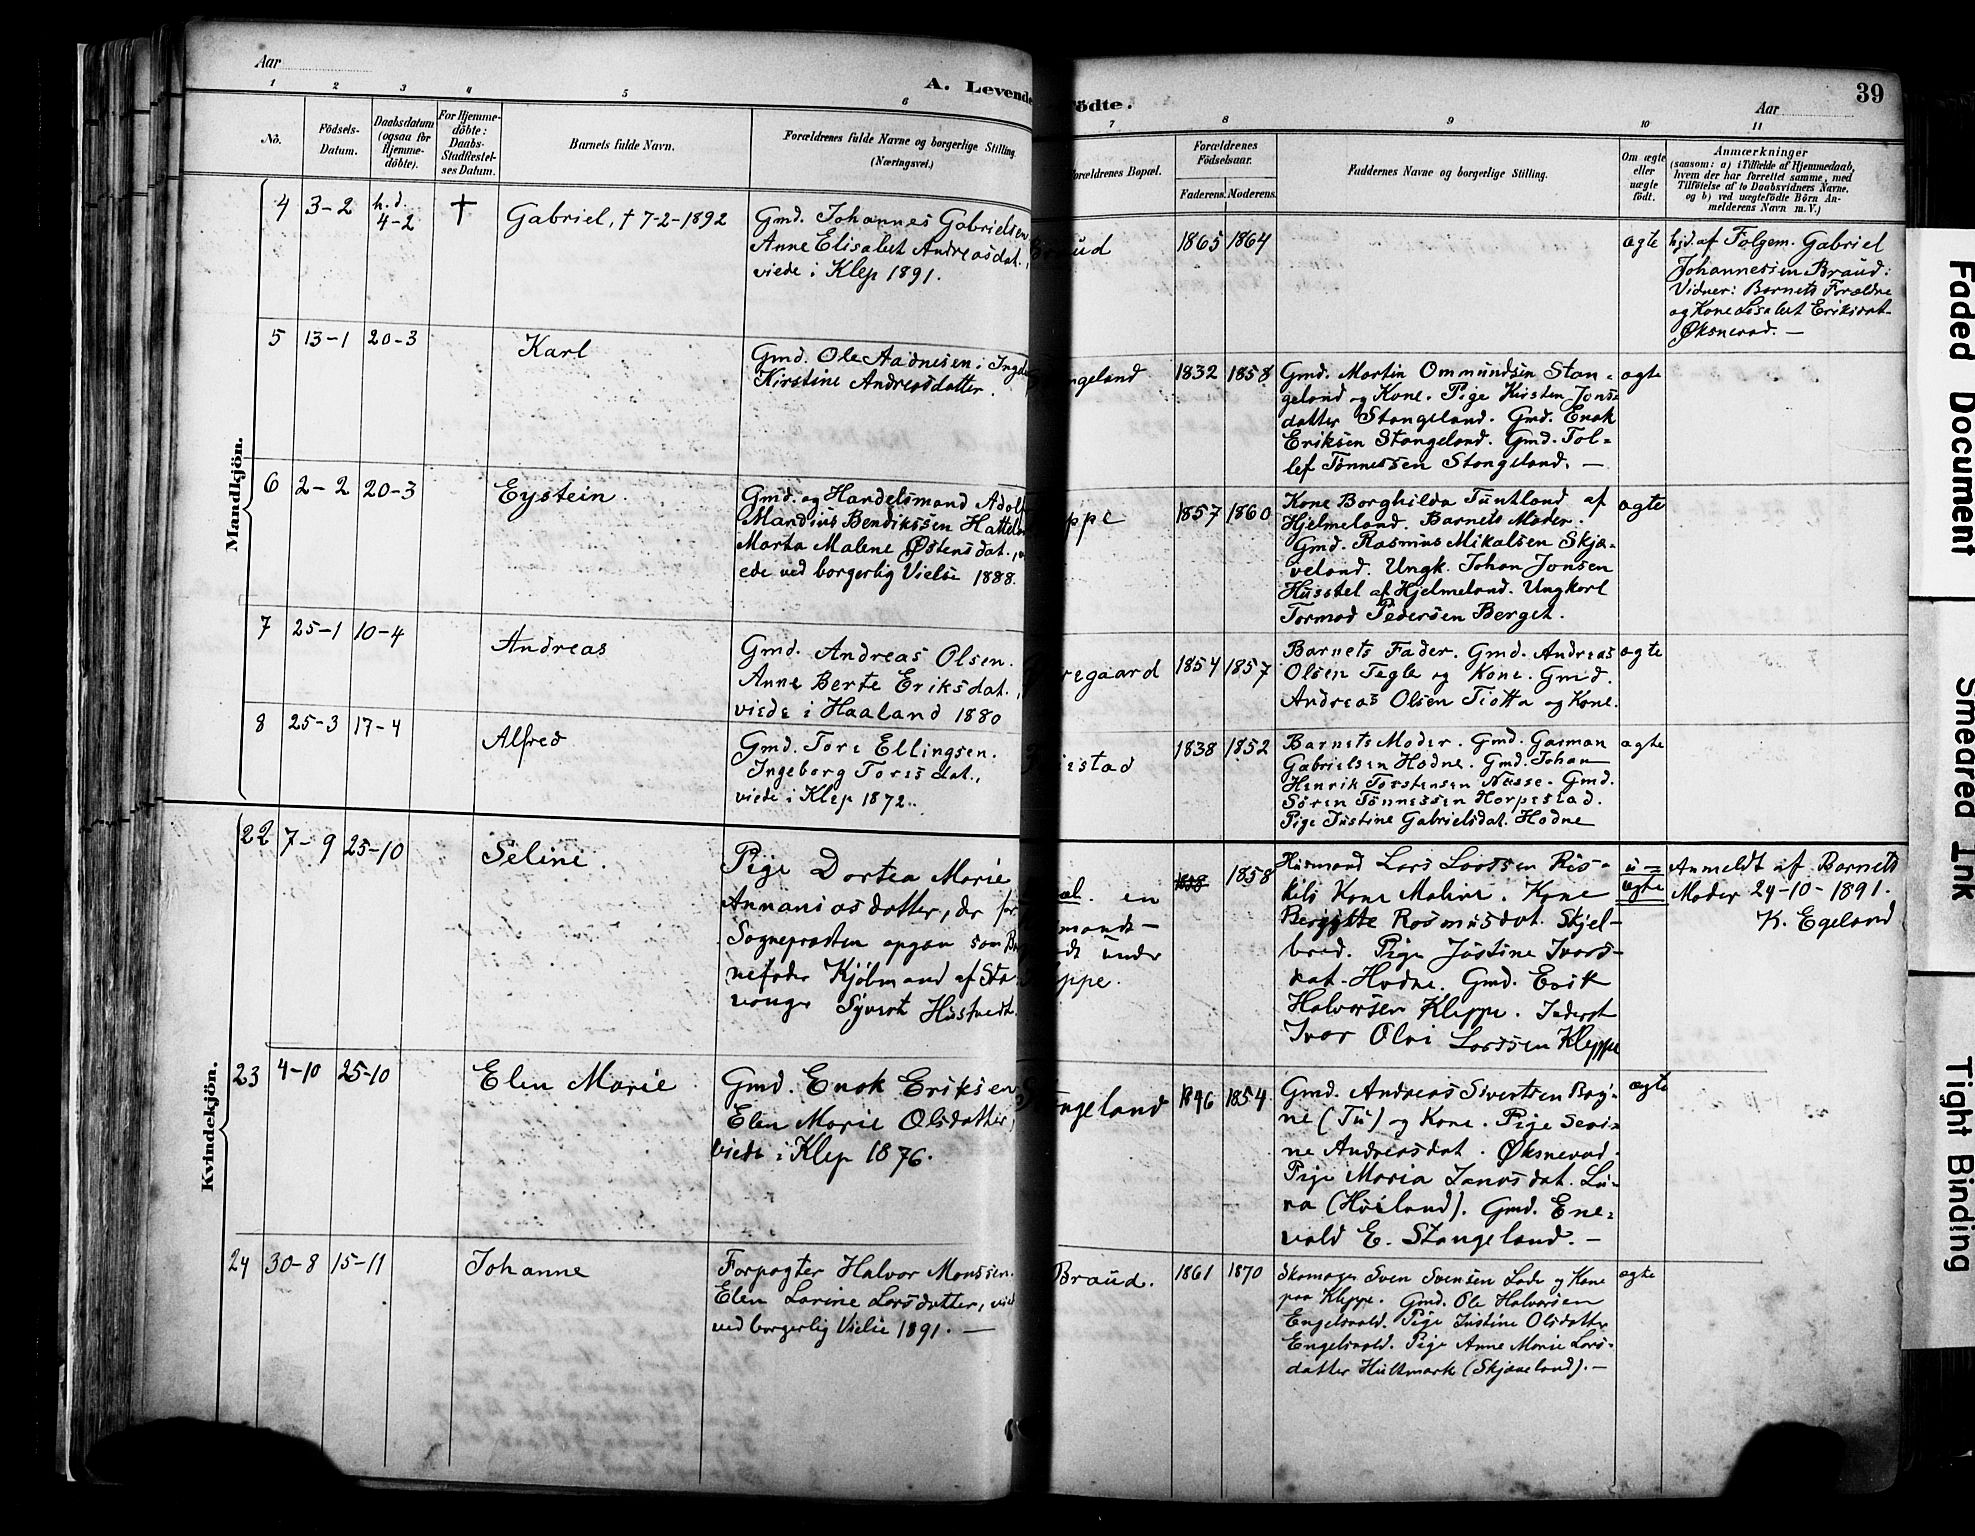 Aar
A. Levende
Födte.
Aar
39
1
2
3
4
5
6
7
8
9
10
11
No.
Födsels-
Datum.
Daabsdatum
(ogsaa for
Hjemme-
döbte).
For Hjemme-
döbte:
Daabs-
Stadfæstel-
ses Datum.
Barnets fulde Navn.
Forældrenes fulde Navne og borgerlige Stilling.
(Næringsvei.)
Forældrenes Bopæl.
Forældrenes
Födselsaar.
Faderens.
Moderens.
Faddernes Navne og borgerlige Stilling.
Om ægte
eller
uægte
födt.
Anmærkninger
(saasom: a) i Tilfælde af Hjemmedaab,
hvem der har forrettet samme, med
Tilföielse af to Daabsvidners Navne,
og b) ved uægtefödte Börn An-
melderens Navn m. V.)
Mandkjön.
4 3-2 h.d. 4-2 † Gabriel, † 7-2-1892
Gmd. Johannes Gabrielsen
Anne Elisabet Andreasdat.,
viede i Klep 1891.
Braud 1865 1864 ægte
hjd. af Følgem. Gabriel
Johannesen Braud:
Vidner: Barnets Forældre
og Kone Lisabet Eriksdat.
Øksnevad. —
5 13-1 20-3 Karl
Gmd. Ole Aadnesen i
Kirstine Andreasdatter.
Stangeland 1832 1858 ægte
Gmd. Martin Ommundsen Stan-
geland og Kone. Pige Kirsten Jons-
datter Stangeland. Gmd. Enok
Eriksen Stangeland. Gmd. Tol-
lef Tønnessen Stangeland. —
6 2-2 20-3 Eystein
Gmd. og Handelsmand Adolf
Mandius Bendikssen
Marta Malene Østensdat.,
ede ved borgerlig Vielse 1888.
Kleppe 1857 1860 ægte
Kone Borghilda Tuntland af
Hjelmeland. Barnets Moder.
Gmd. Rasmus Mikalsen Skjæ-
veland. Ungk. Johan Jonsen
Husstøl af Hjelmeland. Ungkarl
Tormod Pedersen Berget.
7 25-1 10-4 Andreas
Gmd. Andreas Olsen.
Anne Berte Eriksdat.,
viede i Haaland 1880
regaard 1854 1857 ægte
Barnets Fader. Gmd. Andreas
Olsen Tegle og Kone. Gmd.
Andreas Olsen Tiøtta og Kone.
8 25-3 17-4 Alfred
Gmd. Tore Ellingsen.
Ingeborg Toresdat.,
viede i Klep 1872.
istad 1838 1852 ægte
Barnets Moder. Gmd. Garman
Gabrielsen Hodne. Gmd. Johan
Henrik Torstensen Næsse. Gmd.
Sören Tönnessen Horpestad.
Pige Justine Gabrielsdat. Hodne
Kvindekjön.
22 7-9 25-10 Seline.
Pige Dortea Marie
Annaniasdatter, der for
Sognepræsten opgav som Bar
nefader Kjøbmand af Sta
vanger Syvert Hustvedt.
en
mands-
under
Kleppe.
1858
Husmand Lars Larssen Ris-
kils Kone Maline. Kone
Bergitte Rasmusdat. Skjel-
bred. Pige Justine Ivars-
dat. Hodne. Gmd. Erik
Halvorsen Kleppe. Inderst
Ivar Olai Larssen Kleppe
u=
ægte
Anmeldt af Barnets
Moder 24-10-1891.
K. Egeland
23 4-10 25-10 Elen Marie
Gmd. Enok Eriksen
Elen Marie Olsdatter,
viede i Klep 1876.
Stangeland 1846 1854 ægte
Gmd. Andreas Sivertsen Bög-
ne (Tu) og Kone. Pige Seri-
ne Andreasdat. Øksnevad.
Pige Maria Janasdat. Lu-
ra (Høiland). Gmd. Ene-
vald E. Stangeland. —
24 30-8 15-11 Johanne
Forpagter Halvor Monssen.
Elen Larine Larsdatter, vied
ved borgerlig Vielse 1891. —
Braud. 1861 1870 ægte
Skomager Sven Svensen Lade og Kone
paa Kleppe. Gmd. Ole Halvorsen
Engelsvold. Pige Justine Olsdatter
Engelsvold. Pige Anne Marie Lars-
datter Hultmark (Skjæveland). —
Faded Document
Smeared Ink
Tight Binding